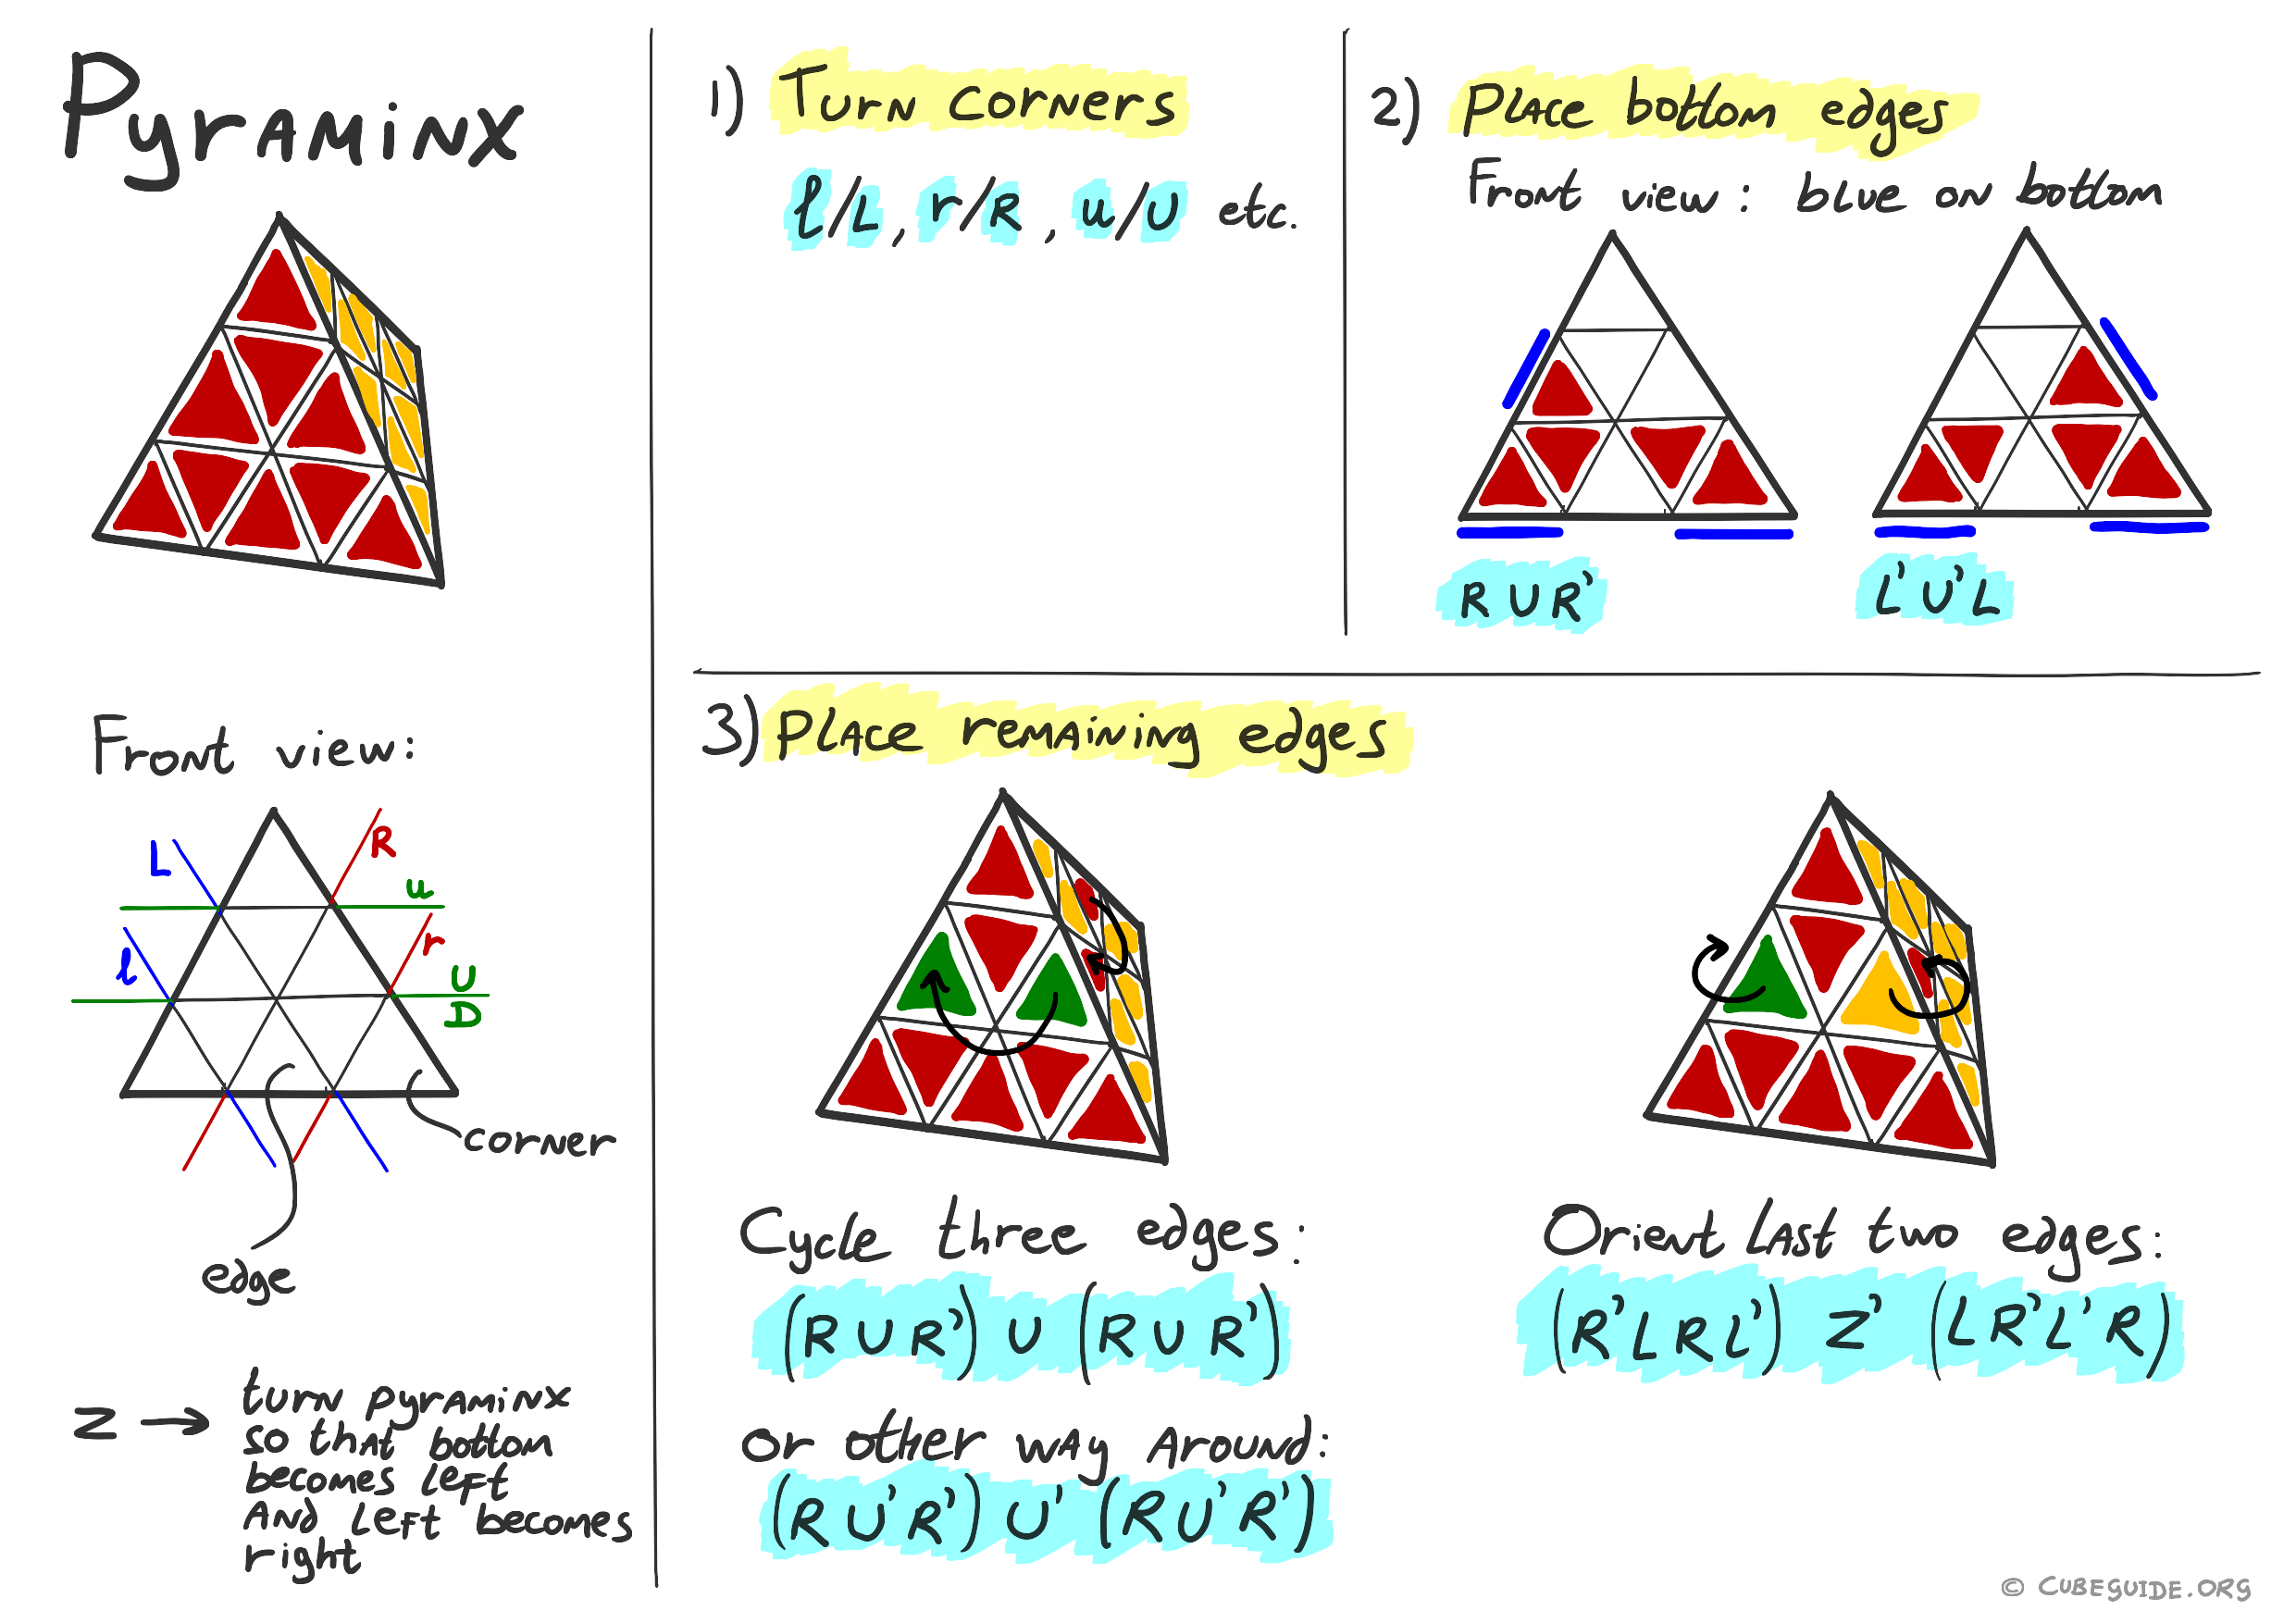 Pyraminx
Front view:
L
R
u
l
r
U
D
corner
edge
z → turn pyraminx
so that bottom
becomes left
and left becomes
right
1) Turn corners
l/L, r/R, u/U etc.
2) Place bottom edges
Front view: blue on bottom
R U R'
L' U' L
3) Place remaining edges
Cycle three edges:
(R U R') U (R U R')
or other way around:
(R U' R') U' (R U' R')
Orient last two edges:
(R' L R L') z' (L R' L' R)
© CUBEGUIDE.ORG